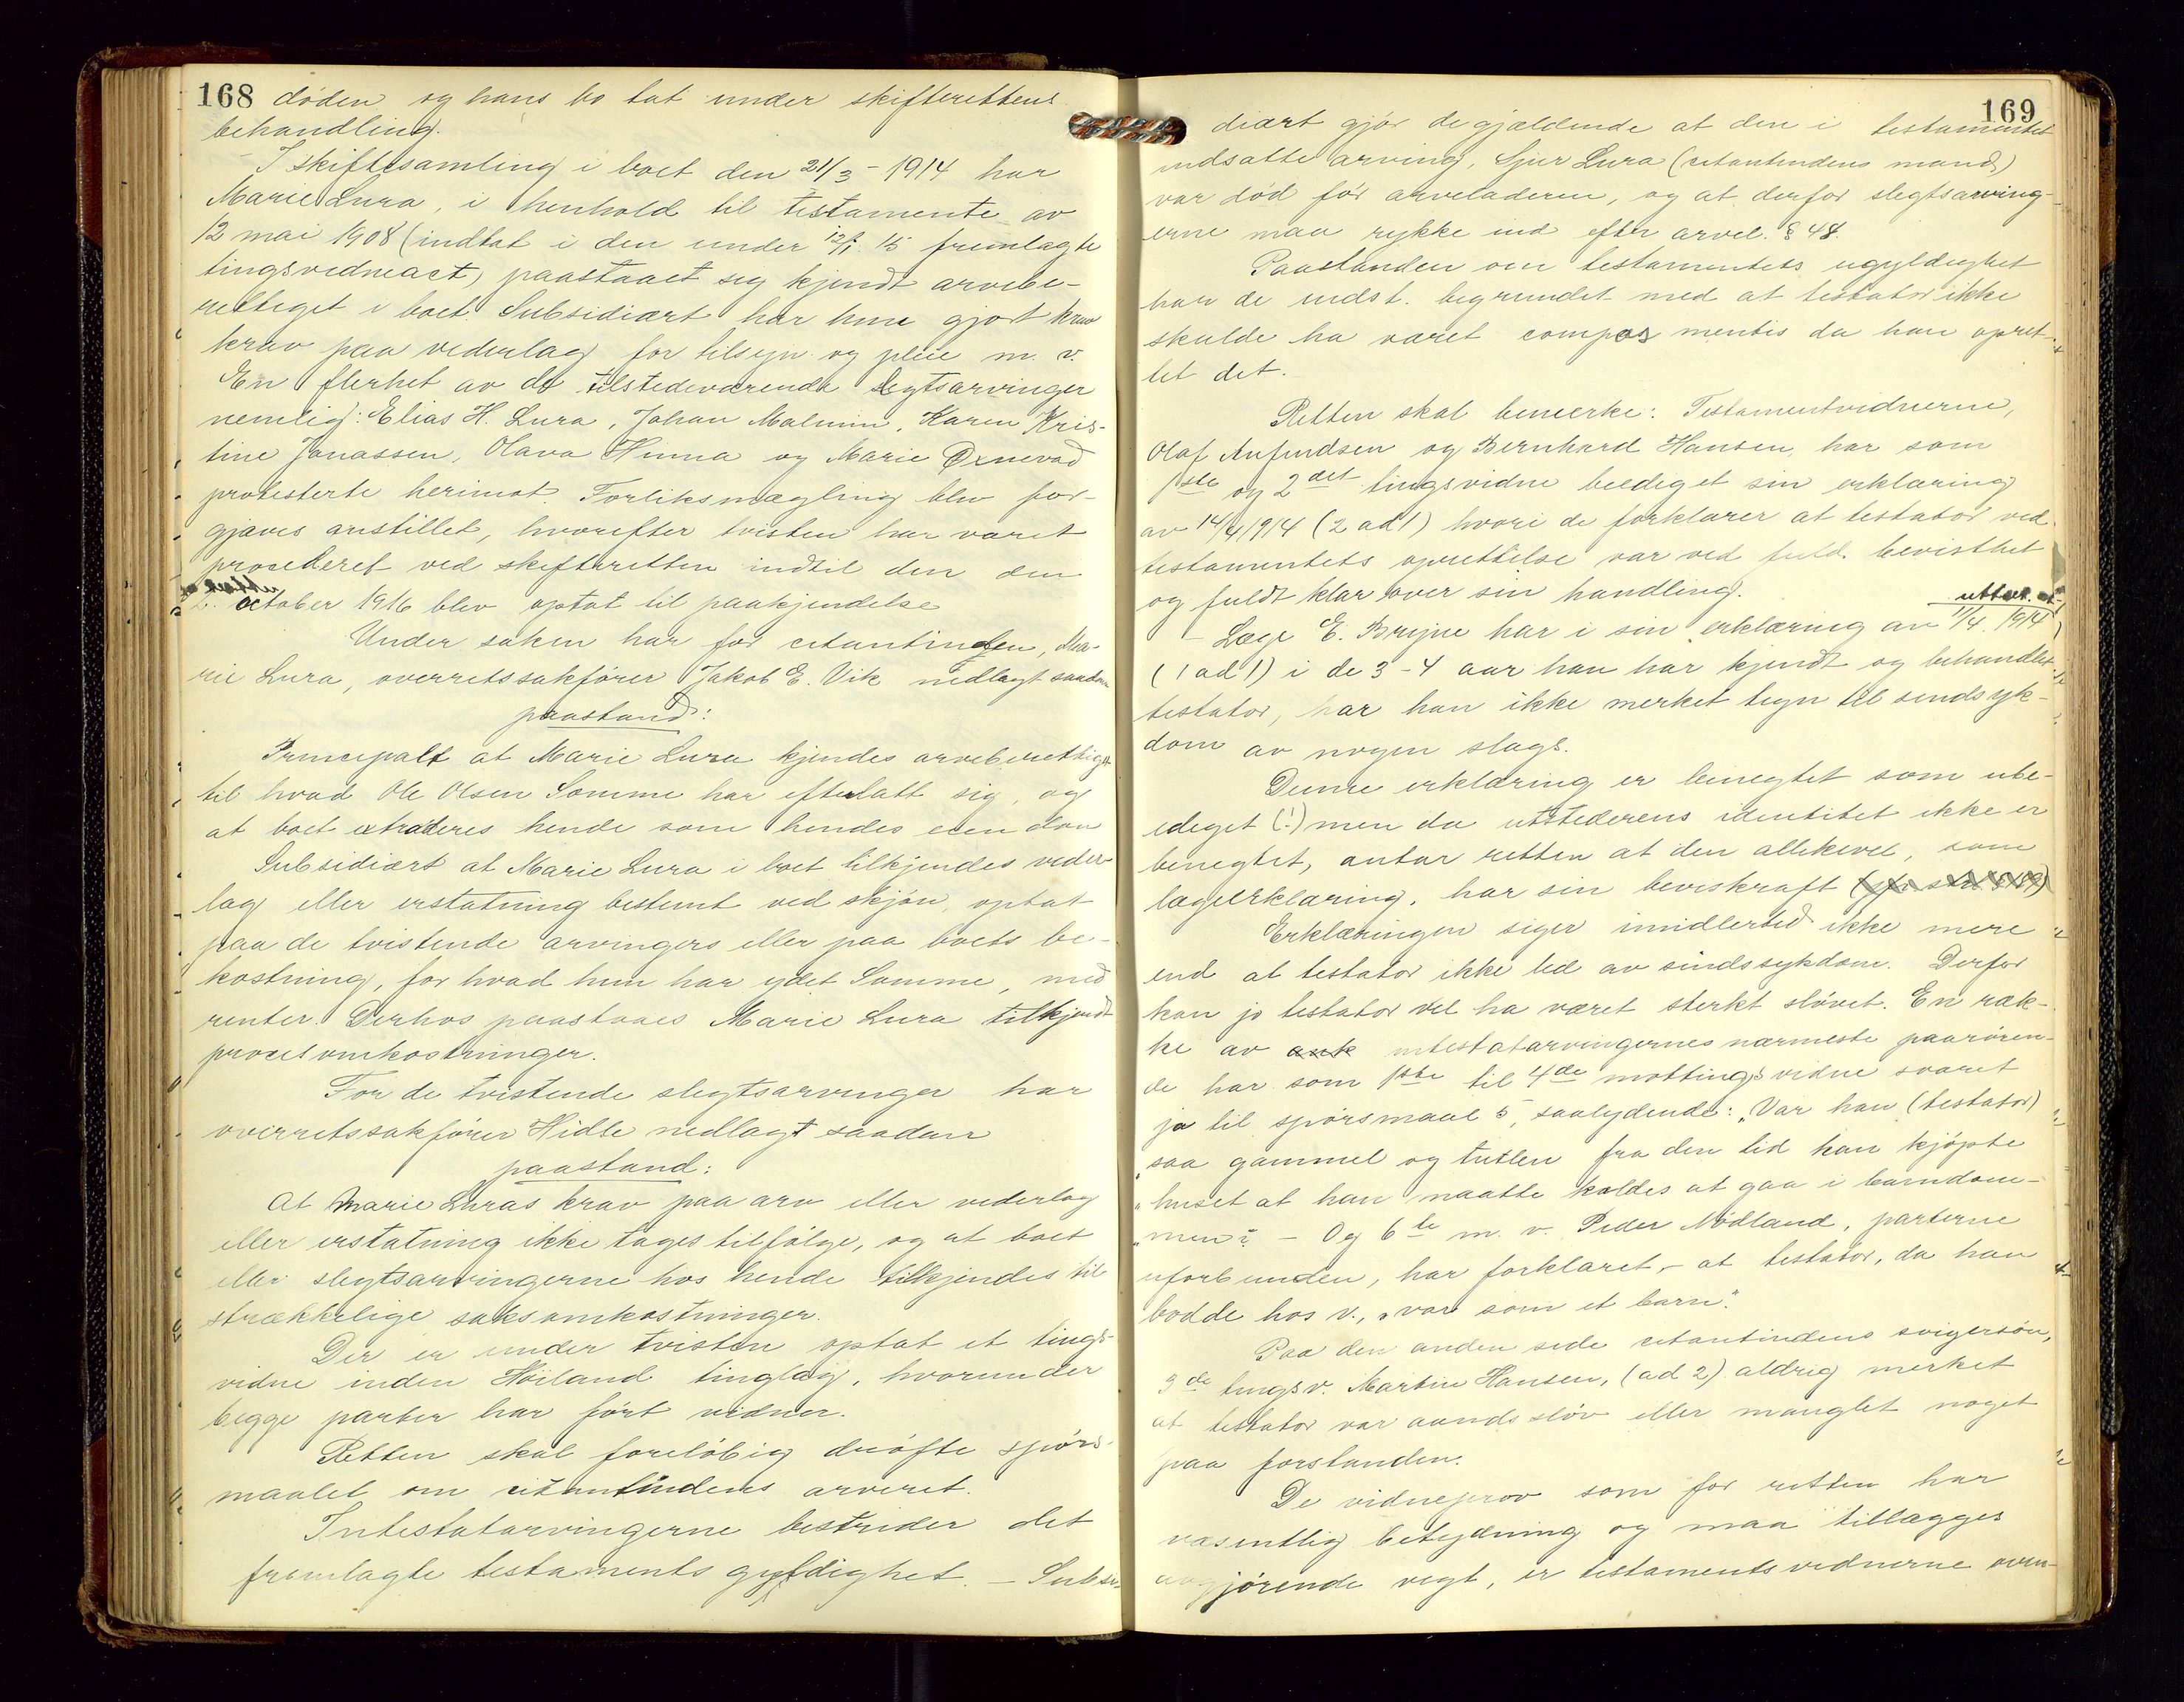 168 døden og hans bo tat under skifterettens
behandling.
I skiftesamling i boet den 21/3 - 1914 har
Marie Lura, i henhold til testamente av
12 mai 1908 (indtat i den under 12/1. 15 fremlagte
tingsvidneact) paastaaet sig kjendt arvebe-
rettiget i boet. Subsidiært har hun gjort krav
krav paa vederlag for tilsyn og pleie m. v.
En flerhet av de tilstedeværende slegtsarvinger
nemlig: Elias H. Lura, Johan Malmin, Karen Kris-
tine Jonassen, Olava Hinna og Marie Ørnevad
protesterte herimot. Forliksmægling blev for-
gjæves anstillet, hvorefter tvisten har været
procederet ved skifteretten indtil den den
2. october 1916 blev optat til paakjendelse
Under saken har for citantinden, Ma-
rie Lura, overretssakfører Jakob E. Vik nedlagt saadan
paastand:
Principalt at Marie Lura kjendes arveberettiget
til hvad Ole Olsen Somme har efterlatt sig, og
at boet extraderes hende som hendes eiendom
Subsidiært at Marie Lura i boet tilkjendes veder-
lag eller erstatning bestemt ved skjøn, optat
paa de tvistende arvingers eller paa boets be-
kostning, for hvad hun har ydet Somme, med
renter. Derhos paastaaes Marie Lura tilkjendt
procesomkostninger.
For de tvistende slegtsarvinger har
overretssakfører Hidle nedlagt saadan
paastand:
At Marie Luras krav paa arv eller vederlag
eller erstatning ikke tages tilfølge, og at boet
eller slegtsarvingerne hos hende tilkjendes til
strækkelige saksomkostninger.
Der er under tvisten optat et tings-
vidne inden Høiland tinglag, hvorunder
begge parter har ført vidner.
Retten skal foreløbig drøfte spørs-
maalet om citantindens arveret.
Intestatarvingerne bestrider det
fremlagte testaments gyldighet. - Subsi-
169
diært gjør de gjældende at den i testamentet
indsatte arving, Sjur Lura (citantindens mand)
var død før arveladeren, og at derfor slegtsarving-
erne maa rykke ind efter arvel. § 48.
Paastanden om testamentets ugyldighet
har de indst. begrundet med at testator ikke
skulde ha været compos mentis da han opret-
tet det.
Retten skal bemerke: Testamentvidnerne,
Olaf Anfindsen og Bernhard Hansen, har som
1ste og 2det tingsvidne beediget sin erklæring
av 14/4 1914 (2 ad 1) hvori de forklarer at testator ved
testamentets oprettelse var ved fuld bevisthet
og fuldt klar over sin handling.
uttalt at
- Læge E. Bryne har i sin erklæring av 11/4. 1914
(1 ad 1) i de 3-4 aar han har kjendt og behandlet
testator, har han ikke merket tegn til sindssyk-
dom av nogen slags.
Denne erklæring er benegtet som ube-
ediget (!) men da utstederens identitet ikke er
benegtet, antar retten at den allikevel, som
lægeerklæring, har sin beviskraft
Erklæringen siger imidlertid ikke mere
end at testator ikke led av sindssykdom. Derfor
kan jo testator vel ha været sterkt sløvet. En ræk-
ke av intestatarvingernes nærmeste paarøren-
de har som 1ste til 4de mottingsvidne svaret
ja til spørsmaal 5, saalydende: „Var han (testator)
„saa gammel og tutlen fra den tid han kjøpte
„huset at han maatte kaldes at gaa i barndom-
„men? - Og 6te m. v. Peder Nødland, parterne
uforbunden, har forklaret,- at testator, da han
bodde hos v., „var som et barn".
Paa den anden side citantindens svigersøn,
3de tingsv. Martin Hansen, (ad 2) aldrig merket
at testator var aandssløv eller manglet noget
paa forstanden.
De vidneprov som for retten har
væsentlig betydning og maa tillægges
avgjørende vegt, er testamentsvidnerne oven-